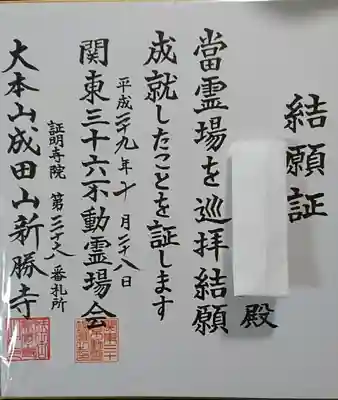 結願証
殿
當霊場を巡拝結願
成就したことを証します
平成二十九年十月二十八日
関東三十六不動霊場会
証明寺院 第三十六番札所
大本山成田山新勝寺